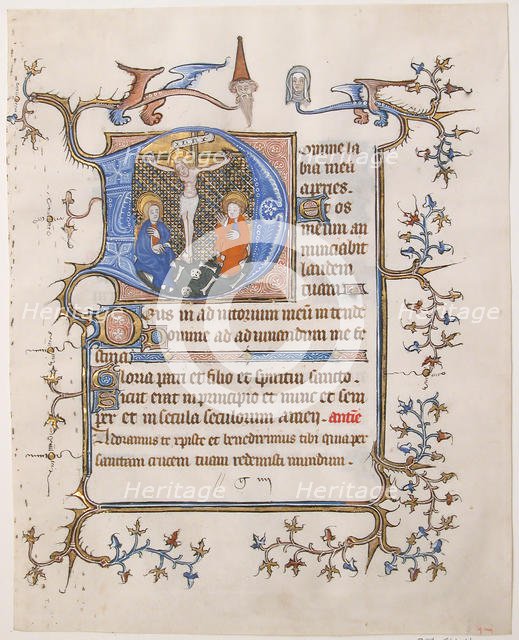 omne la
bia mea
apries.
Et os
meum an
nunciabit
laudem
tuam.
Deus in adiutorium meum in tende
Domine ad adiuuandum me fe
stina.
Gloria patri et filio et spiritui sancto.
Sicut erat in principio et nunc et sem
per et in secula seculorum amen. antine
Adoramus te xpiste et benedicimus tibi quia per
sanctam crucem tuam redemisti mundum.
Heritage
Heritage
Heritage
Heritage
Heritage
Heritage
Heritage
Heritage